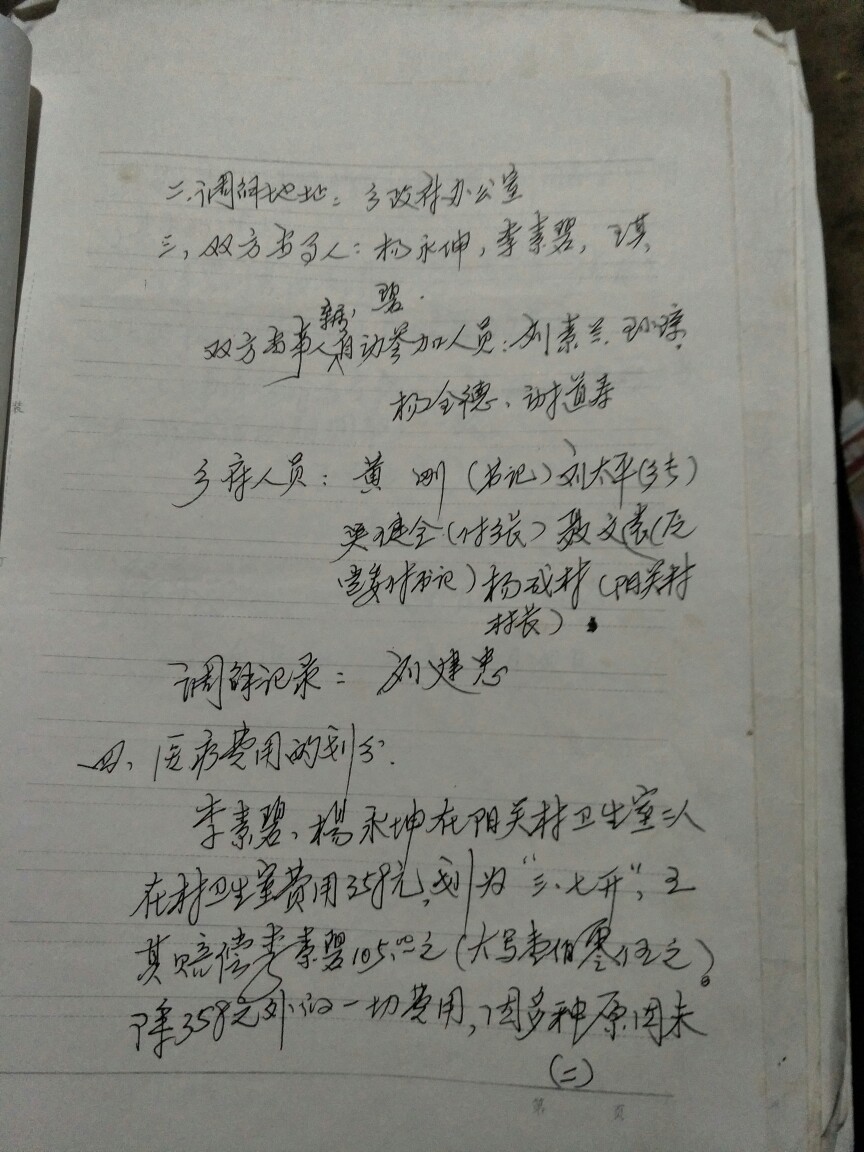 二、调解地址：乡政府办公室
三、双方当事人：杨永坤，李素碧，王其
碧.
亲属
双方当事人自动参加人员：刘素兰、王小琼，
杨全德、谢道寿
乡府人员：黄刚（书记）刘太平（乡长）
（付乡长）聂文
党委付书记）杨成材（阳关村
村长）.
调解记录：刘建忠
四、医疗费用的划分.
李素碧、楊永坤在阳关村卫生室二人
在村卫生室费用358元，划为“三、七开”，王
其赔偿李素碧105.00元（大写壹佰零伍元）。
除358元外的一切费用，因多种原因未
（二）
第 页
装